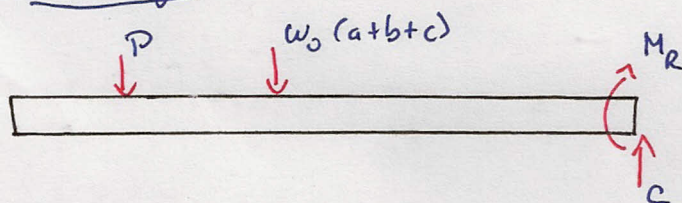 P
w₀ (a+b+c)
M_R
C